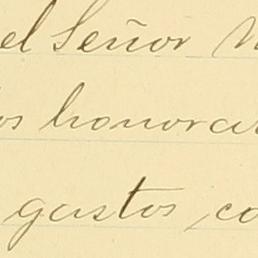 el Señor
os honorar
gastos co